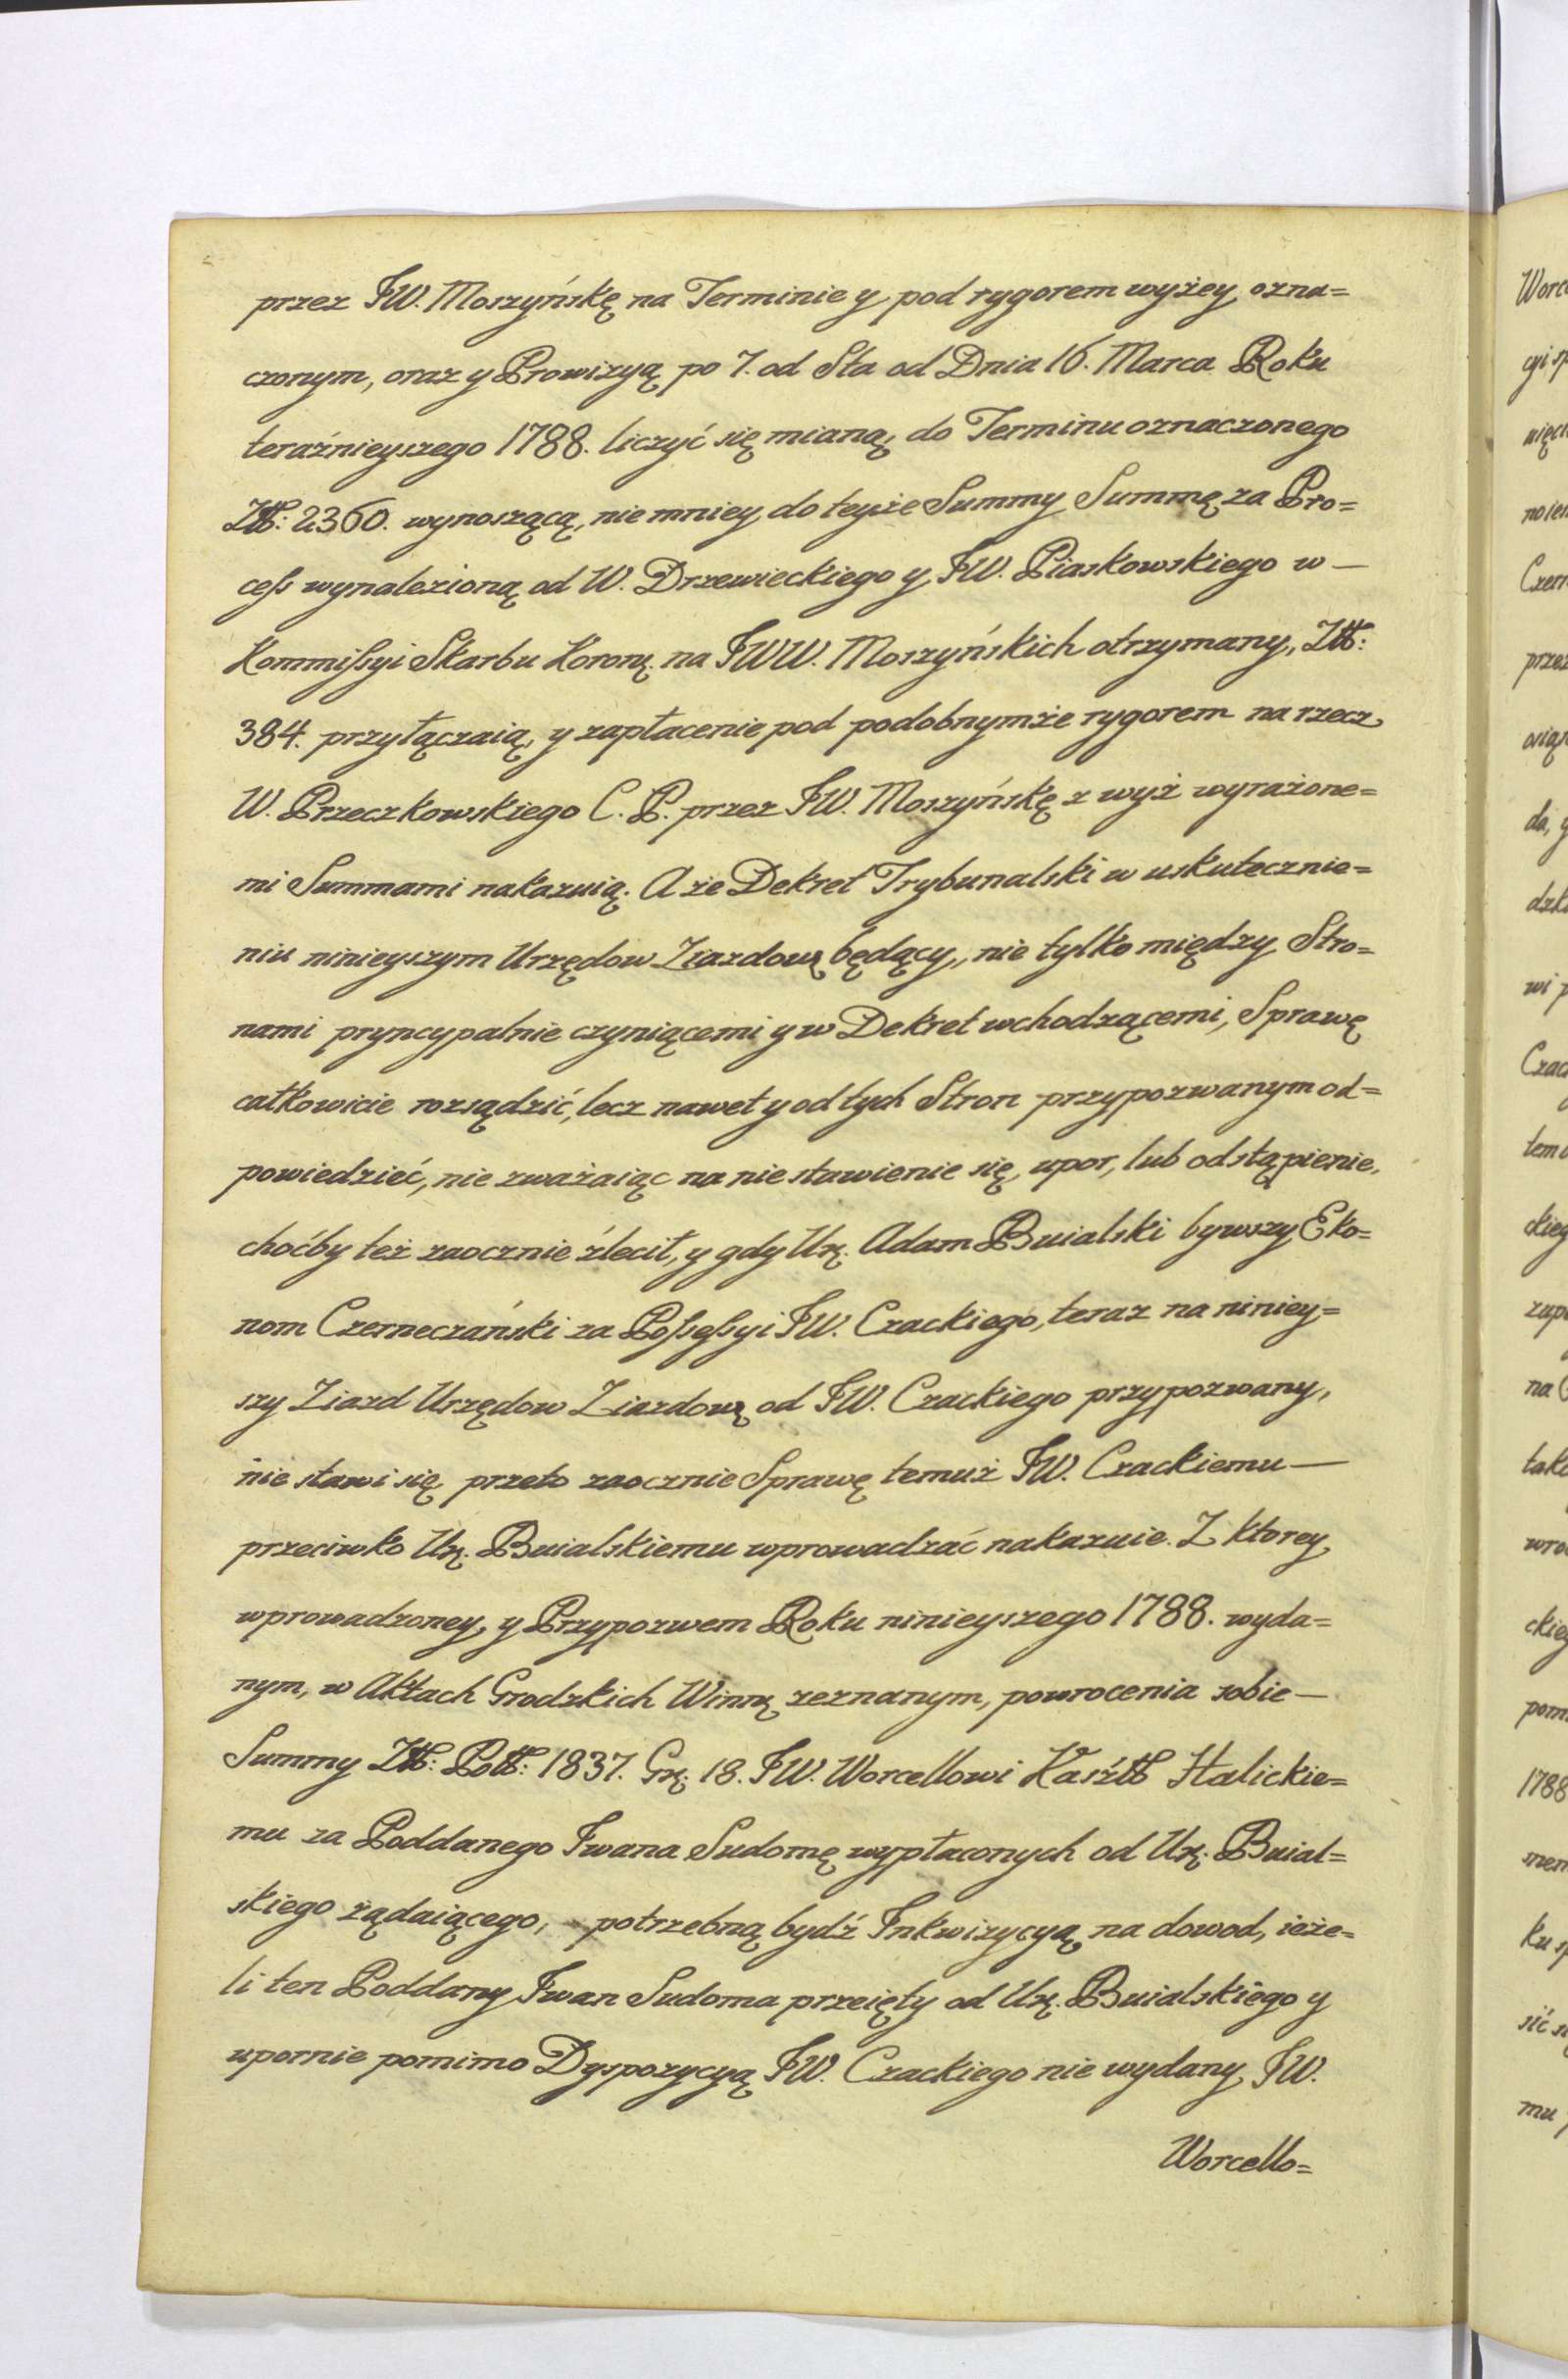 przez JW. Moszyńskę na Terminie y pod rygorem wyżey ozna=
czonym, oraz y Prowizyą po 7. od Sta od Dnia 16. Marca Roku
teraźnieyszego 1788. liczyć się mianą, do Terminu oznaczonego
Złł: 2360. wynoszącą, nie mniey do teyże Summy Summę za Pro=
ceſs wynalezioną od W. Drzewieckiego y JW. Piaskowskiego w —
Kommiſsyi Skarbu Koronę. na JWW. Moszyńskich otrzymany, Złł:
384. przyłączaią, y zapłacenie pod podobnymże rygorem na rzecz
W. Przeczkowskiego C. P. przez JW. Moszyńskę z wyż wyrażone=
mi Summami nakazuią. A że Dekret Trybunalski w uskutecznie=
niu ninieyszym Urzędow Ziazdowę będący, nie tylko między Stro=
nami pryncypalnie czyniącemi y w Dekret wchodzącemi, Sprawę
całkowicie rozsądzić, lecz nawet y od tych Stron przypozwanym od=
powiedzieć, nie zważaiąc na nie stawienie się, upor, lub odstąpienie,
choćby też zaocznie źlecił, y gdy Urę. Adam Buialski bywszy Eko=
nom Czerneczański za Poſseſsyi JW. Czackiego, teraz na niniey=
szy Ziazd Urzędow Ziazdowę od JW. Czackiego przypozwany,
nie stawi się przeto zaocznie Sprawę temuż JW. Czackiemu —
przeciwko Urę. Buialskiemu wprowadzać nakazuie. Z ktorey
wprowadzoney, y Przypozwem Roku ninieyszego 1788. wyda=
nym, w Aktach Grodzkich Winnę zeznanym, powrocenia sobie —
Summy Złł: Polł: 1837. Grę: 18. JW. Worcellowi Kasźtł Halickie=
mu za Poddanego Iwana Sudomę wypłaconych od Urę. Buial=
skiego żądaiącego, potrzebną bydź Inkwizycyą na dowod, ieże=
li ten Poddany Iwan Sudoma przeięty od Urę. Buialskiego y
upornie pomimo Dyspozycyą JW. Czackiego nie wydany JW.
Worcello=